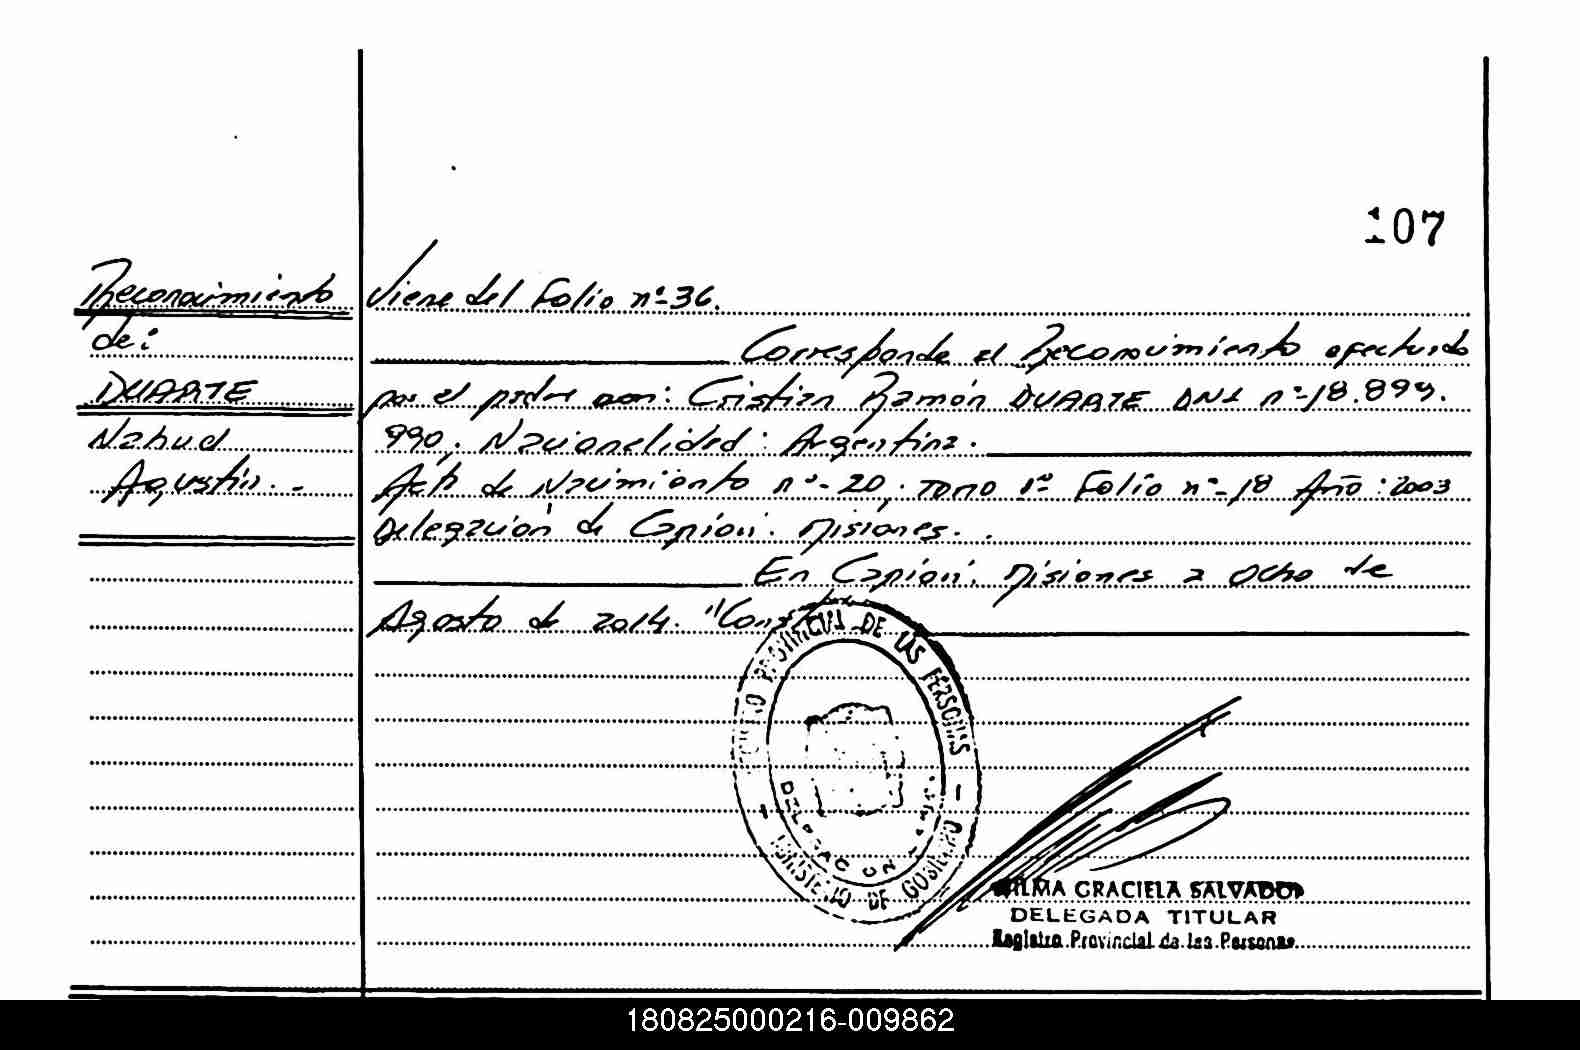 107
Reconocimiento
de:
DUARTE
Nahuel
Agustín.-
Viene del Folio nº-36.
Corresponde al Reconocimiento efectuado
por el padre don: Cristian Ramón DUARTE DNI nº-18.899.
990. Nacionalidad: Argentina.
Acta de Nacimiento nº-20, Tomo 1º Folio nº-18 Año:2003
Delegación de Capioví. Misiones..
En Capioví. Misiones a Ocho de
Agosto de 2014. "Conste
REGISTRO PROVINCIAL DE LAS PERSONAS
DELEGACION
MINISTERIO DE GOBIERNO
WILMA GRACIELA SALVADOR
DELEGADA TITULAR
Registro Provincial de las Personas
180825000216-009862